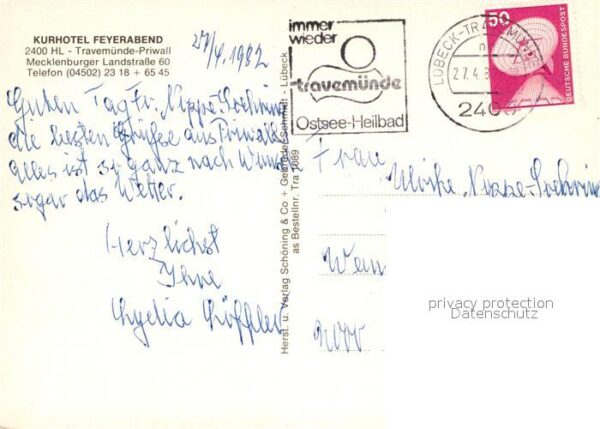 KURHOTEL FEYERABEND
2400 HL - Travemünde-Priwall
Mecklenburger Landstraße 60
Telefon (04502) 23 18 + 65 45
27/4. 1982
Guten Tag Fr. Nippe-
die besten Grüße aus Priwall
alles ist so ganz nach Wunsch
sogar das Wetter.
Herzlichst
Ihre
Lydia Löffler
Herst. u. Verlag Schöning & Co + Gebrüder Schmidt - Lübeck
as Bestellnr. Tra 1089
immer
wieder
travemünde
Ostsee-Heilbad
LÜBECK-TRAVEMÜNDE
27.4.8
2400
50
DEUTSCHE BUNDESPOST
Frau
Ulrike Nippe-
privacy protection
Datenschutz